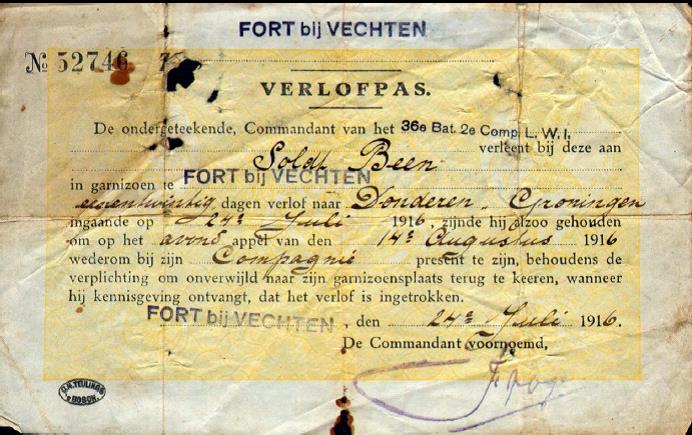 FORT bij VECHTEN
№ 52746
VERLOFPAS.
De ondergeteekende, Commandant van het 36e Bat. 2e Comp. L. W. I.
verleent bij deze aan
Soldt Been
in garnizoen te FORT bij VECHTEN
eenentwintig dagen verlof naar Donderen. Groningen
ingaande op 24e Juli 1916, zijnde hij alzoo gehouden
om op het avond appel van den 14e Augustus 1916
wederom bij zijn Compagnie present te zijn, behoudens de
verplichting om onverwijld naar zijn garnizoensplaats terug te keeren, wanneer
hij kennisgeving ontvangt, dat het verlof is ingetrokken.
FORT bij VECHTEN, den 24e Juli 1916.
De Commandant voornoemd,
G.H. TEULINGS
's BOSCH.